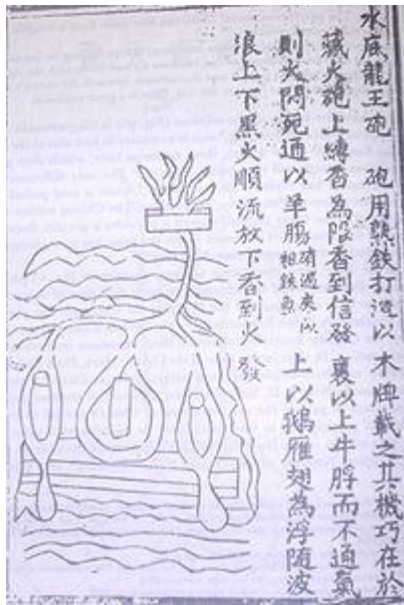 水底龍王砲 砲用熟鉄打造以木牌載之其機巧在於
藏火砲上縛香為限香到信發 裹以上牛脬而不通氣
則火悶死通以羊腸 上以鵝雁翅為浮隨波
浪上下黑火順流放下香到火發